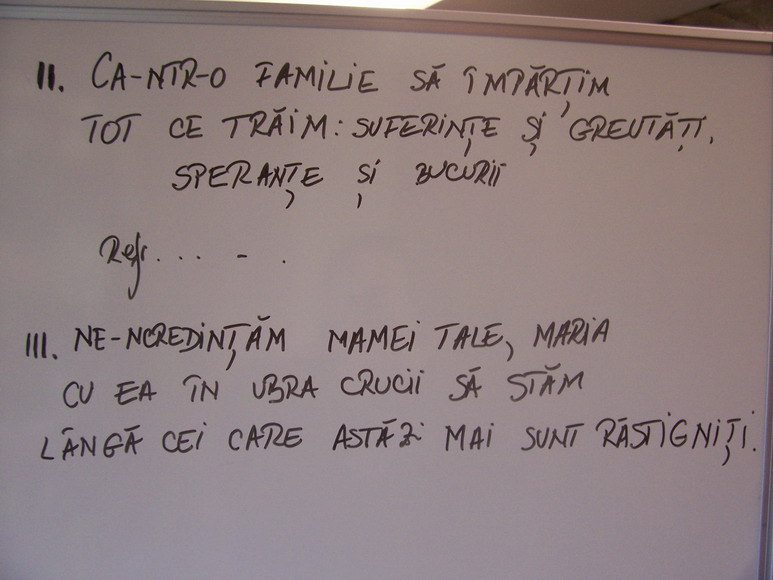 II. CA-NTR-O FAMILIE SĂ ÎMPĂRȚIM
TOT CE TRĂIM: SUFERINȚE ȘI GREUTĂȚI,
SPERANȚE ȘI BUCURII
Refr. . . . - .
III. NE-NCREDINȚĂM MAMEI TALE, MARIA
CU EA ÎN UBRA CRUCII SĂ STĂM
LÂNGĂ CEI CARE ASTĂZI MAI SUNT RĂSTIGNIȚI.